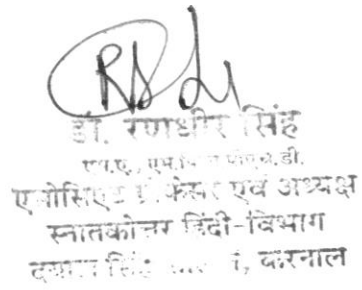 डॉ. रणधीर सिंह
एम.ए., एम.फिल, पीएच.डी.
एसोसिएट प्रोफेसर एवं अध्यक्ष
स्नातकोत्तर हिंदी-विभाग
दयाल सिंह करनाल